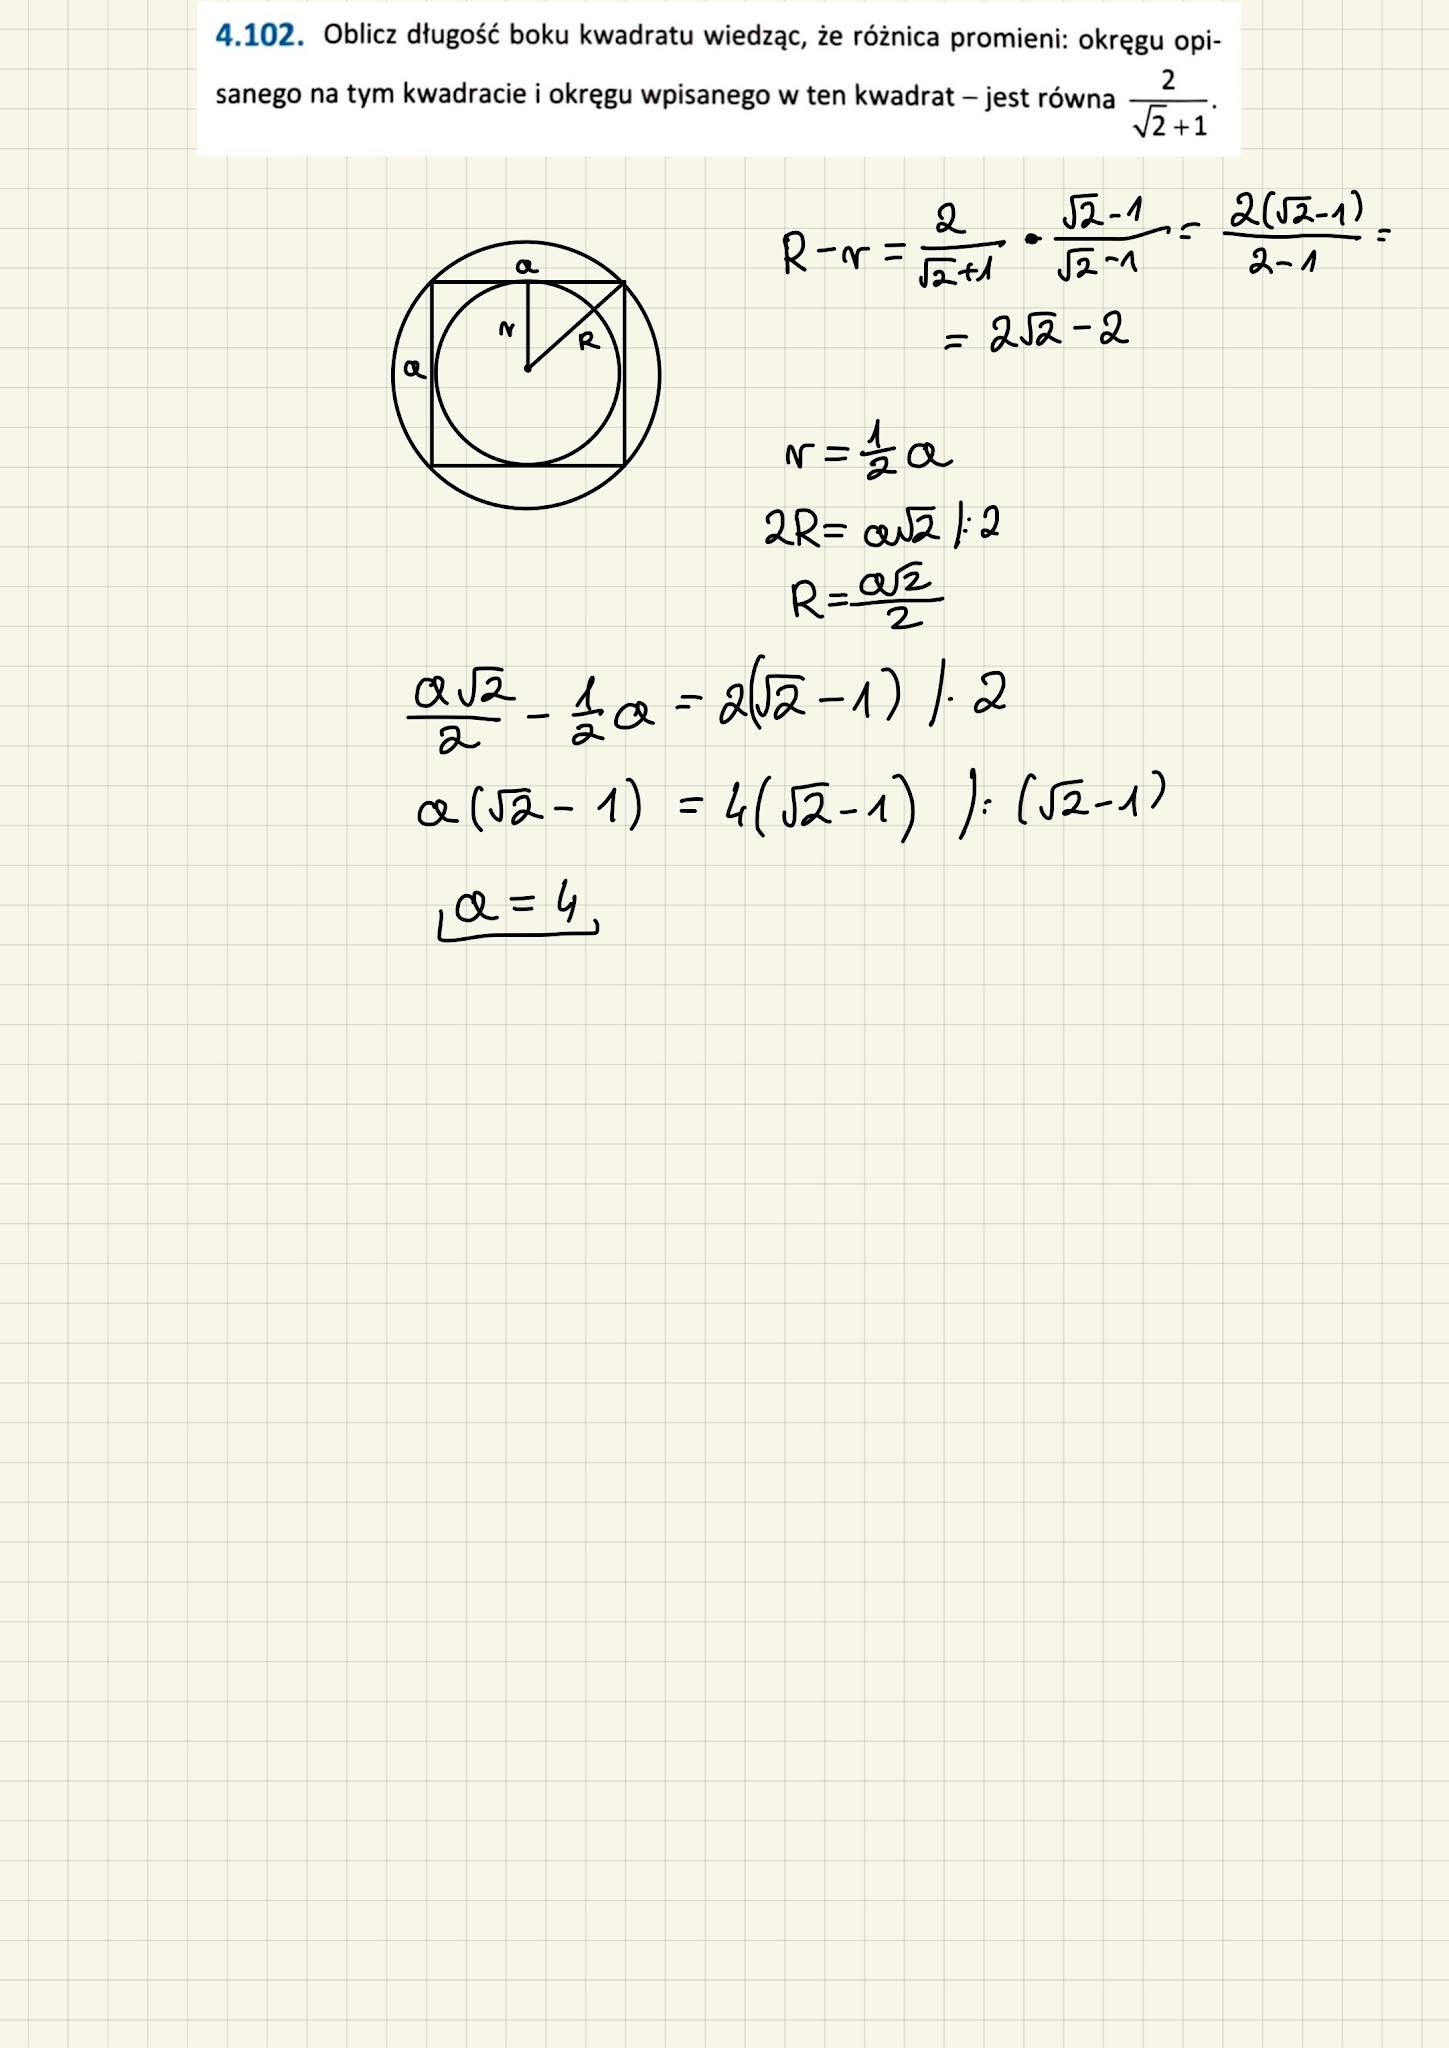 4.102. Oblicz długość boku kwadratu wiedząc, że różnica promieni: okręgu opi-
sanego na tym kwadracie i okręgu wpisanego w ten kwadrat – jest równa 2/(√2+1).
R-r = 2/(√2+1) • (√2-1)/(√2-1) = 2(√2-1)/(2-1) =
= 2√2-2
a
r
R
a
r = 1/2 a
2R = a√2 |:2
R = a√2/2
a√2/2 - 1/2 a = 2(√2-1) |·2
a(√2-1) = 4(√2-1) |:(√2-1)
a = 4